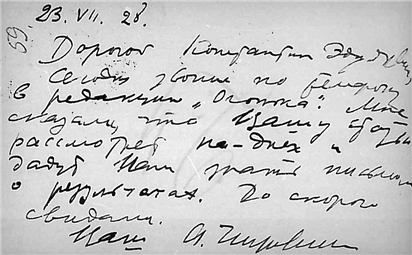 23.VII.28.
59.
Дорогой Константин Эдуардович
Сегодня звонил по телефону
в редакцию „Огонька“. Мне
сказали, что Вашу статью
рассмотрят на-днях и
дадут Вам знать письмом
о результатах. До скорого
свидания.
Ваш А.